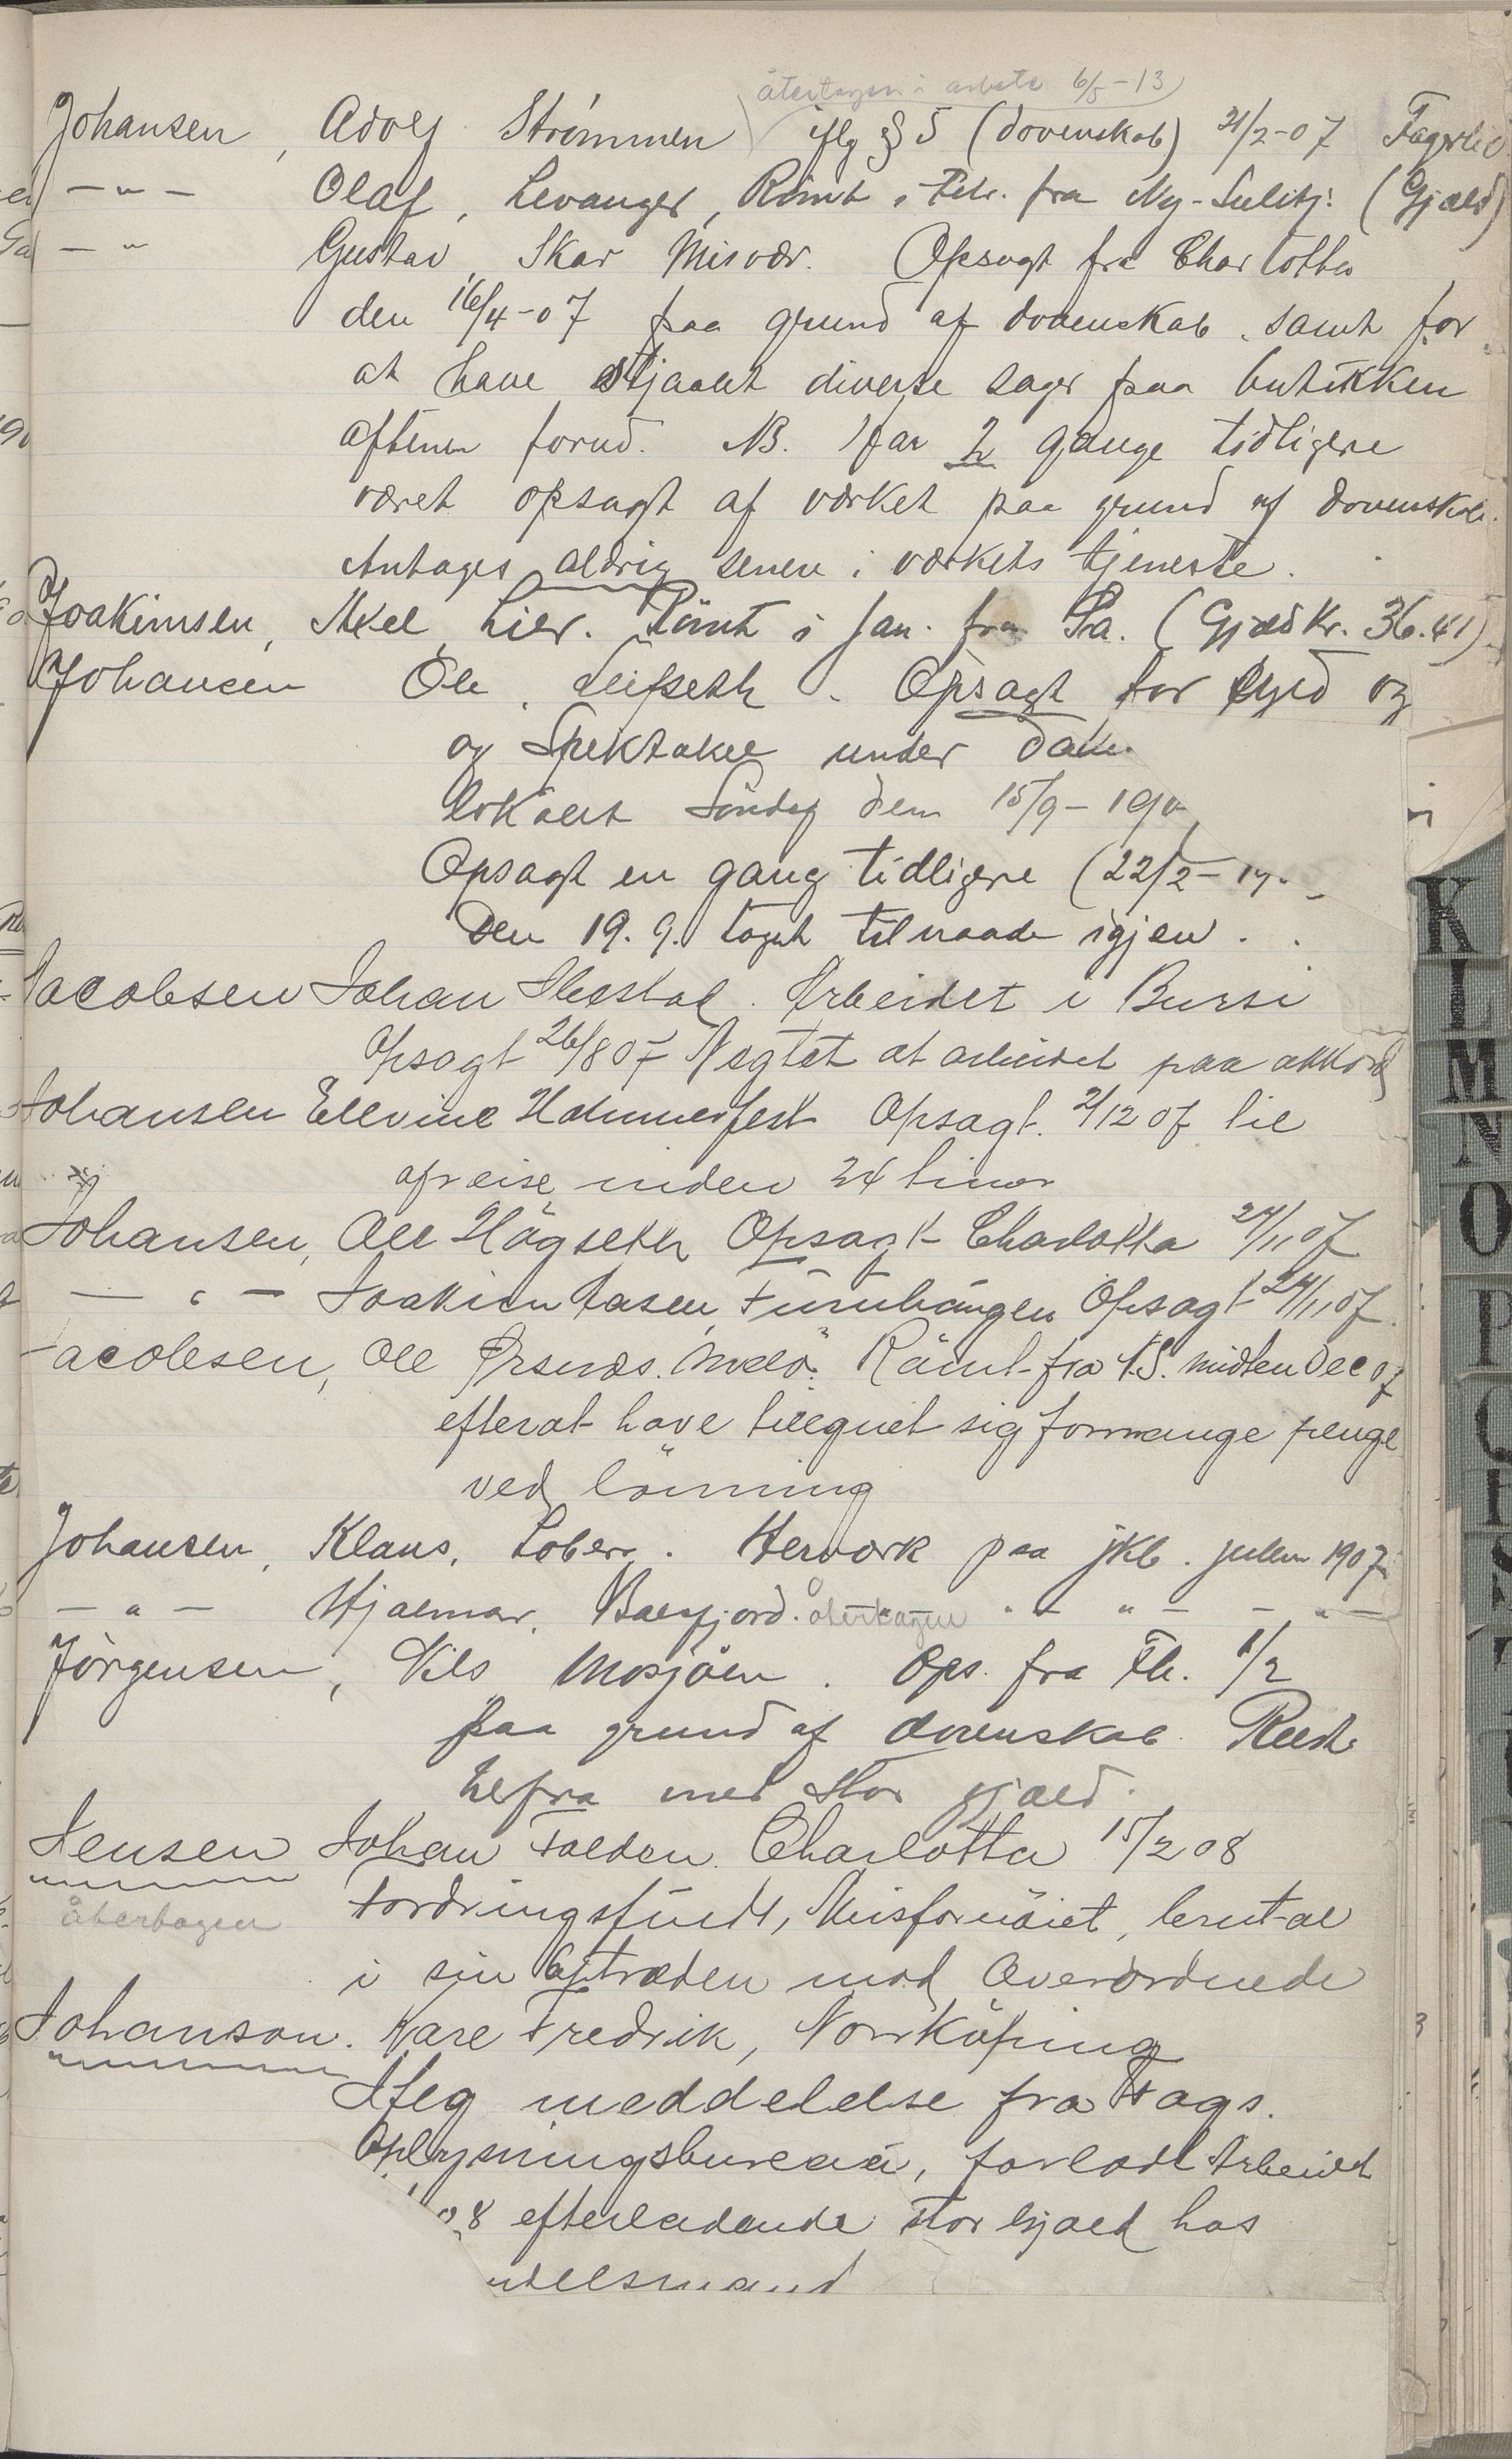 återtagen i arbete 6/5-13
Johansen, Adolf Strømmen iflg § 5 (dovenskab) 21/2-07 Fagerli
— " — Olaf, Levanger, Römt i Feb. fra Ny-Sulitj. (Gjæld)
— " Gustav, Skar Misvær. Opsagt fra Charlotta
den 16/4-07 paa grund af dovenskab, samt for
at have stjaalet diverse sager paa butikken
aftenen forud. NB. Har 2 gange tidligere
været opsagt af værket paa grund af dovenskab.
Antages aldrig senere i værkets tjeneste.
Joakimsen, Axel, Lier. Römt i Jan. fra Sa. (Gjæld Kr. 36.41)
Johansen Ole, Leifseth. Opsagt for og
og Spektakel under
lokalet Söndag den 15/9-190
Opsagt en gang tidligere (22/2-
Den 19.9. taget tilnaade igjen.
Jacobsen Johan Ibestad. Arbeidet i Bursi
Opsagt 26/8 07 Negtet at arbeidet paa akkord
Johansen Ellvine Hammerfest Opsagt. 2/12 07 til
afreise inden 24 timer
Johansen, Ole Högseth Opsagt Charlotta 24/11 07
— " — Joakim Jasen, Furuhaugen Opsagt 24/11 07.
Jacobsen, Ole Römt fra N.S. midten Dec 07
efter at have tilegnet sig formange penge
ved lönning
Johansen, Klaus, Hærværk paa jkb. julen 1907
— " — Hjalmar, Balsfjord. återtagen " — " — — " —
Jörgensen, Nils Mosjöen. Ops. fra Fb. 1/2
paa grund af dovenskab. Reiste
herfra med stor gjæld.
Jensen Johan Folden. Charlotta 15/2 08
återtagen Fordringsfuldt, Misfornöiet, brutal
i sin optræden mod Overordnede
Johanson. Karl Fredrik, Norrköping
Iflg meddelelse fra Fags.
Oplysningsbureau, forlodt Arbeidet
08 efterladende stor gjæld hos
ndelsmand
K
L
M
N
O
P